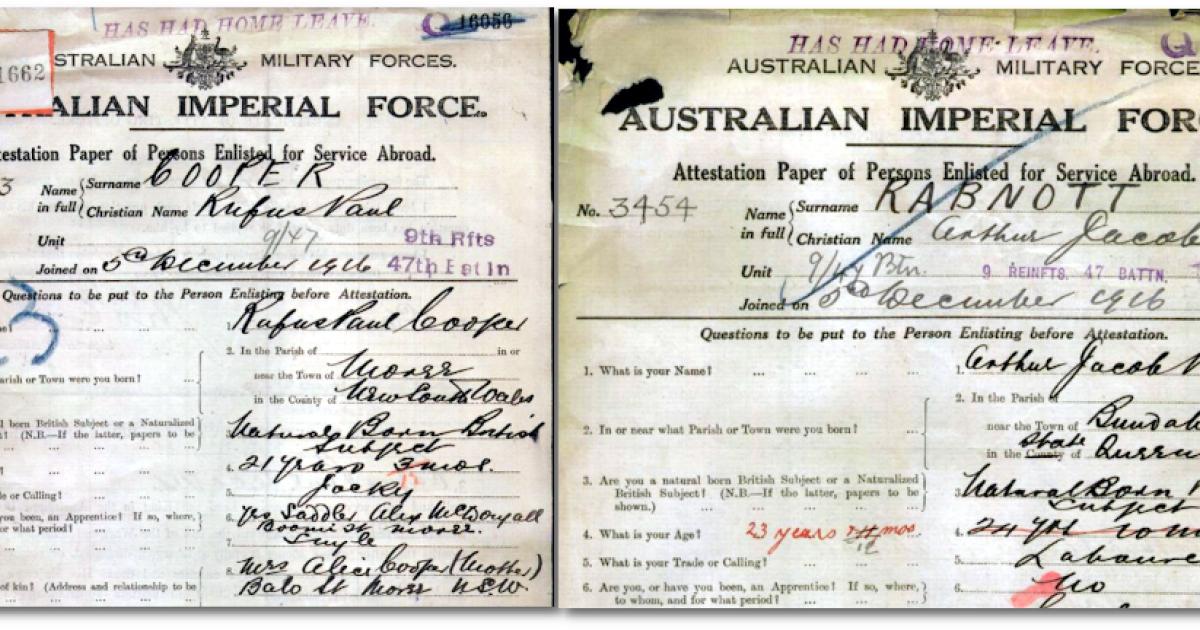 HAS HAD HOME LEAVE.
Q 16056
1662
STRALIAN MILITARY FORCES.
ALIAN IMPERIAL FORCE.
testation Paper of Persons Enlisted for Service Abroad.
3
Name in full
Surname COOPER
Christian Name Rufus Paul
Unit 9/47 9th Rfts
Joined on 5th December 1916 47th Batln
Questions to be put to the Person Enlisting before Attestation.
1. Rufus Paul Cooper
2. In the Parish of in or
arish or Town were you born? ... near the Town of Moree
in the County of New South Wales
l born British Subject or a Naturalized
? (N.B.—If the latter, papers to be
3. Natural Born British Subject
4. 21 years 3 mos.
le or Calling? ... 5. Jocky
you been, an Apprentice? If so, where,
or what period?
6. Yes Saddler Alex McDougall
Boomi st Moree.
7. Single
of kin? (Address and relationship to be
8. Mrs Alice Cooper (Mother)
Balo St Moree N.S.W.
HAS HAD HOME LEAVE.
Q
AUSTRALIAN MILITARY FORCE
AUSTRALIAN IMPERIAL FOR
Attestation Paper of Persons Enlisted for Service Abroad.
No. 3454
Name in full
Surname RABNOTT
Christian Name Arthur Jacob
Unit 9/47 Btn. 9 REINFTS. 47 BATTN.
Joined on 5th December 1916
Questions to be put to the Person Enlisting before Attestation.
1. What is your Name? ... ... ... ... 1. Arthur Jacob
2. In the Parish of
2. In or near what Parish or Town were you born? ... near the Town of Bundab
in the County of State Queen
3. Are you a natural born British Subject or a Naturalized
British Subject? (N.B.—If the latter, papers to be
shown.)
3. Natural Born
Subject
4. What is your Age? 23 years mos. 4.
5. What is your Trade or Calling? ... ... ... 5. Laboure
6. Are you, or have you been, an Apprentice? If so, where,
to whom, and for what period? ... ... ...
6. No